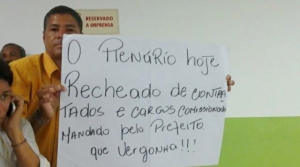 RESERVADO
A IMPRENSA
O Plenário hoje
Recheado de contra
tados e cargos comissionado
mandado pelo Prefeito
que vergonha!!!